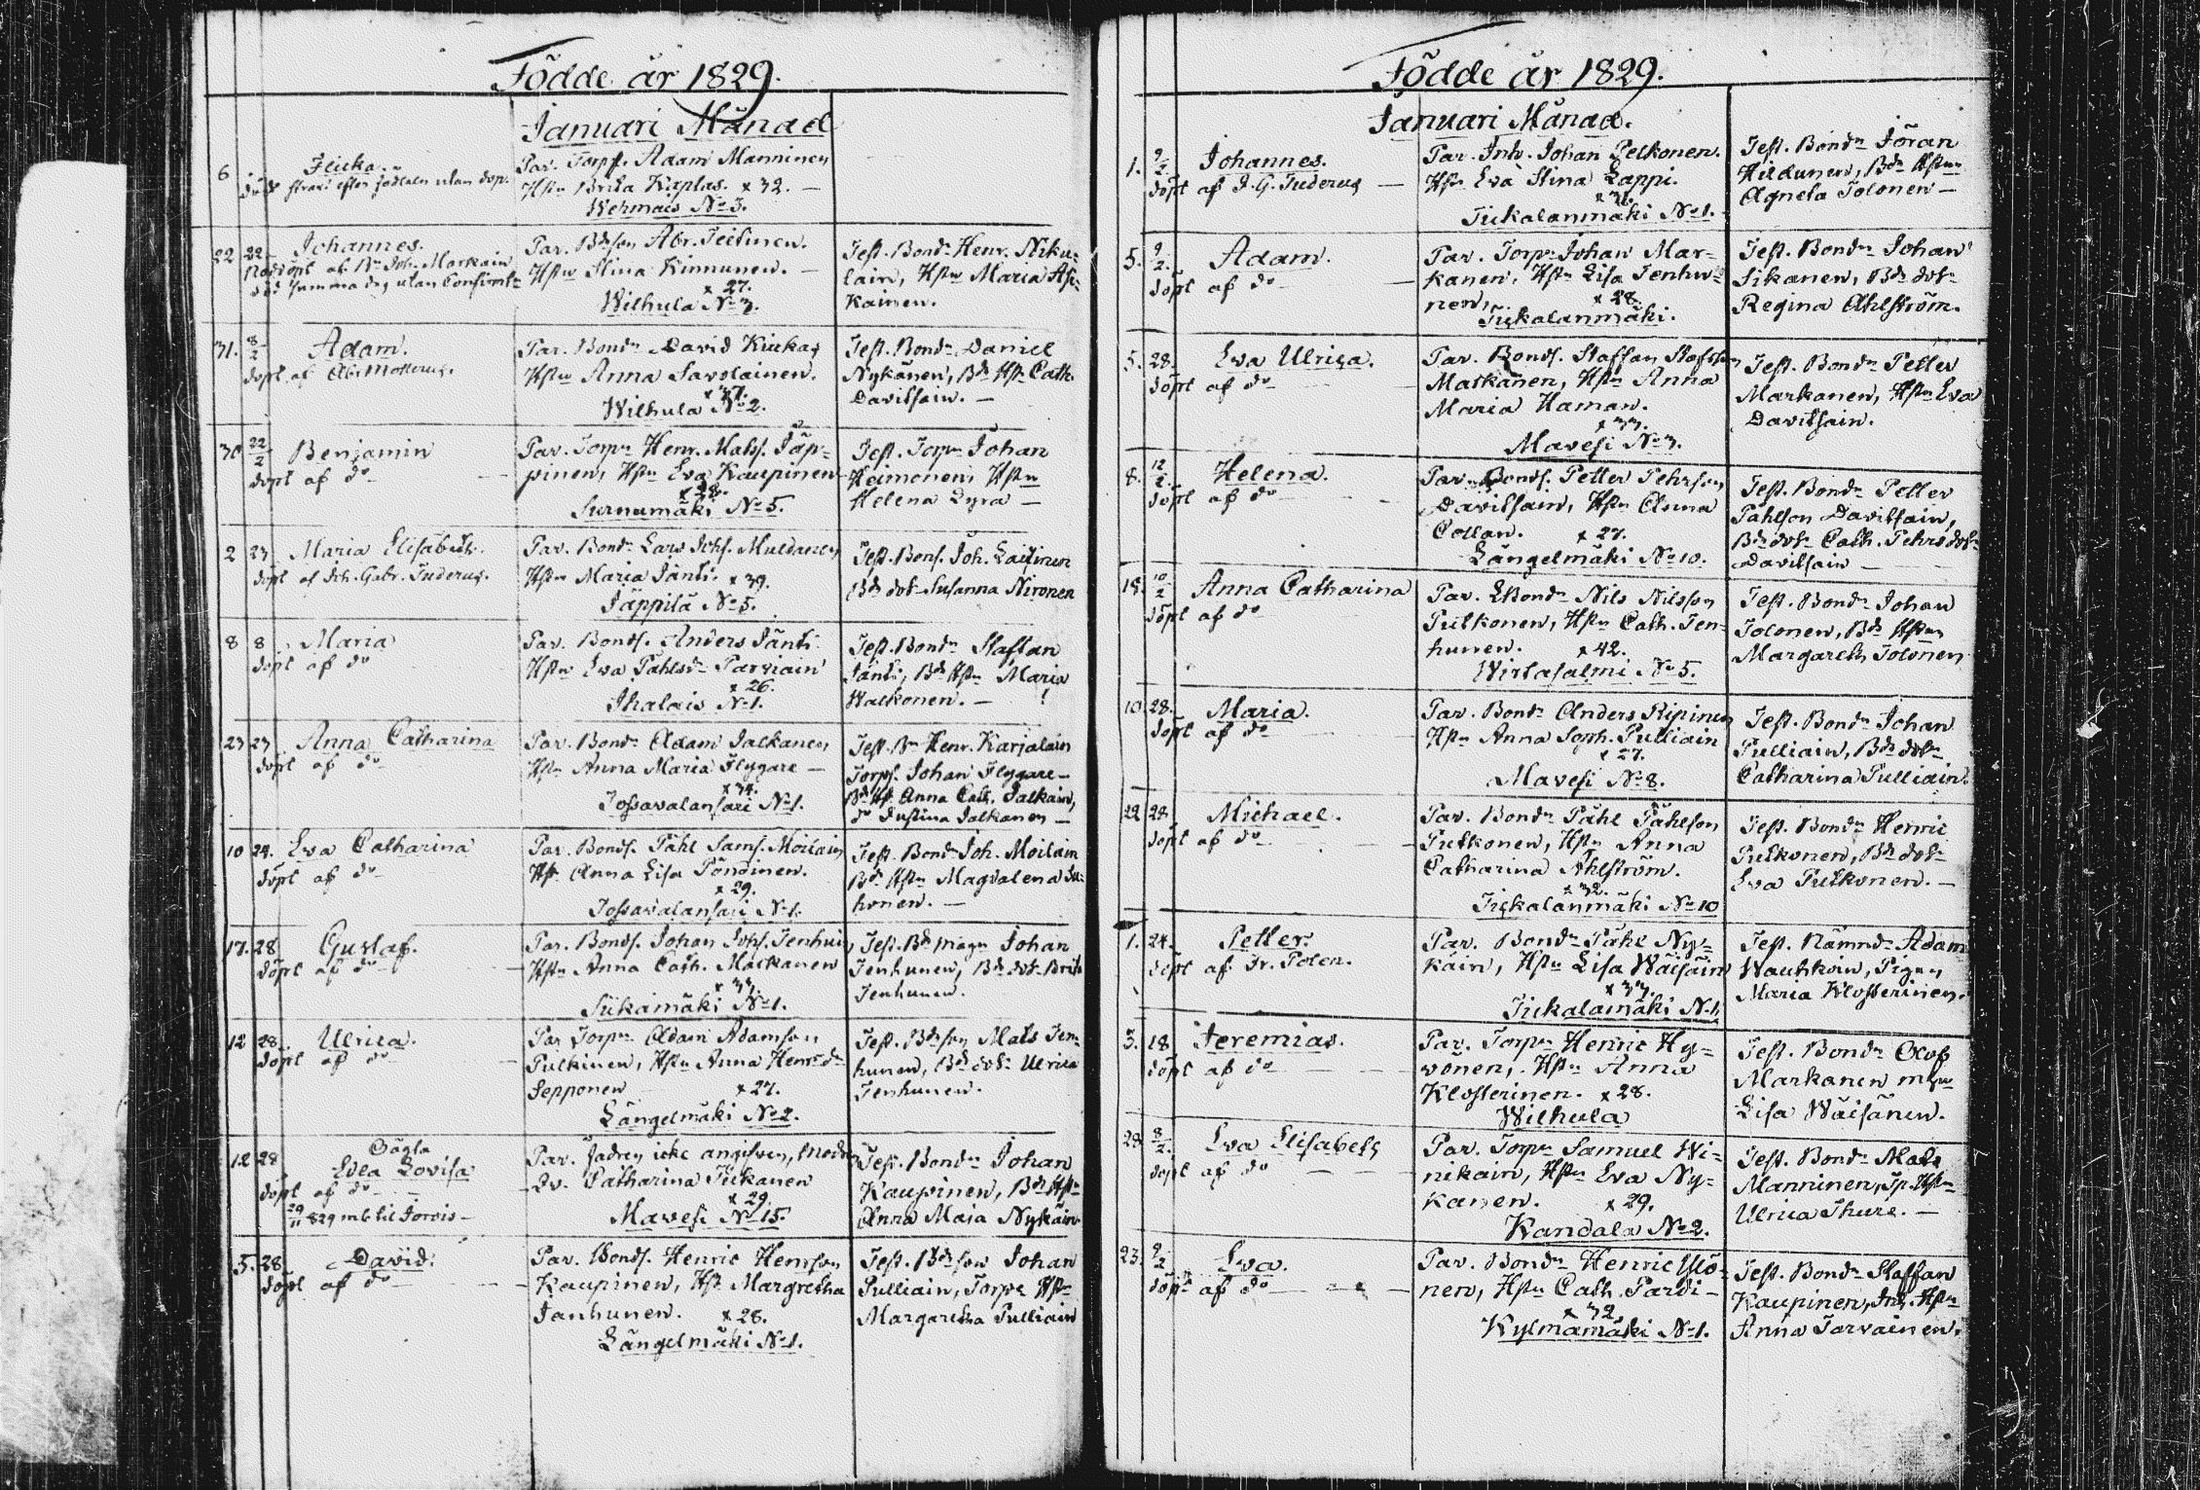 Födde år 1829.
Januari Månad
6
Flicka.
död strax efter födseln utan dop.
Par. Torpr. Adam Manninen
Hstru Brita Kaplas. x 32. —
Wehmais No 3.
22 22
Johannes.
Nöddöpt af Bn Joh. Markain
död samma dag utan Confirmt.
Par. Bdeson Abr. Teittinen.
Hstru Stina Kinnunen. —
x 27.
Wilhula No 3.
Test. Bondn Henr. Niku-
lain, Hstru Maria Asi-
kainen.
31. 8/2
Adam.
döpt af Abr. Mollerus.
Par. Bondn David Kiukas
Hstru Anna Savolainen.
x 37.
Wilhula No 2.
Test. Bondn Daniel
Nykänen, Bde Hstru Cath.
Davitsain. —
30 22/2
Benjamin
döpt af do —
Par. Torpn Henr. Mats. Jäp-
pinen, Hstru Eva Kaupinen
Surnumäki No 5.
Test. Torpn Johan
Heimonen, Hstru
Helena Lyra —
2 23
Maria Elisabeth.
döpt af Joh. Gabr. Tuderus.
Par. Bondn Lars Johs. Muldanen
Hstru Maria Jänti. x 39.
Jäppilä No 5.
Test. Bons. Joh. Laitinen
Bde dotr Susanna Nironen
8 8
Maria
döpt af do
Par. Bonds. Anders Jänti
Hstru Eva Påhlsdr Parviain
x 26.
Ihalais No 1.
Test. Bondn Staffan
Jänti, Bde Hstru Maria
Walkonen. —
23 23
Anna Catharina
döpt af do
Par. Bondn Adam Jalkanen
Hstru Anna Maria Flygare —
x 34.
Josavalansari No 1.
Test. Bn Henr. Karjalain
Torps. Johan Flygare —
Bde H. Anna Cath. Jalkain,
do Justina Jalkanen —
10 24.
Eva Catharina
döpt af do
Par. Bonds. Påhl Sams. Moilain
Hstr Anna Lisa Pöndinen.
x 29.
Josavalansari No 1.
Test. Bondn Joh. Moilain
Bde Hstru Magdalena Su-
honen. —
17. 28
Gustaf.
döpt af do —
Par. Bonds. Johan Johs. Tenhuin
Hstru Anna Cath. Markanen
x 33.
Siikamäki No 1.
Test. Bde mågn Johan
Tenhunen, Bde dotr Brita
Tenhunen.
12 28
Ulrica.
döpt af do —
Par. Torpn Adam Adamson
Pulkinen, Hstru Anna Henrsdr
Sepponen x 27.
Längelmäki No 2.
Test. Bdeson Mats Ten-
hunen, Bde dotr Ulrica
Tenhunen.
12 28
Oägta
Edla Lovisa
döpt af do —
29/11 829 mb til Jorois —
Par. Fadren icke angifven, Modren
Qv. Catharina Tiikanen
x 29.
Mavesi No 15.
Test. Bondn Johan
Kaupinen, Bde Hstru
Anna Maja Nykäin
5. 28
David.
döpt af do —
Par. Bonds. Henric Henrson
Kaupinen, Hstr Margretha
Janhunen. x 28.
Längelmäki No 1.
Test. Bdeson Johan
Pulliain, Torpe Hstru
Margaretha Pulliain
Födde år 1829.
Januari Månad.
1. 9/2
Johannes.
döpt af J. G. Tuderus —
Par. Inh. Johan Pelkonen.
Hstru Eva Stina Lappi.
Tiikalanmäki No 1.
Test. Bondn Jöran
Hildunen, Bde Hstru
Agneta Tolonen —
5. 9/2
Adam.
döpt af do —
Par. Torpn Johan Mar-
kanen, Hstru Lisa Tenhu-
nen, x 28.
Tiikalanmäki.
Test. Bondn Johan
Sikanen, Bde dotr
Regina Ahlström.
5. 28.
Eva Ulrica.
döpt af do —
Par. Bonds. Staffan Stafsson
Markanen, Hstru Anna
Maria Haman.
x 33.
Mavesi No 3.
Test. Bondn Petter
Markanen, Hstru Eva
Davitsain.
8. 12/2
Helena.
döpt af do —
Par. Bonds. Petter Pehrson
Davitsain, Hstru Anna
Collan. x 27.
Längelmäki No 10.
Test. Bondn Petter
Påhlson Davitsain,
Bde dotr Cath. Pehrsdotr
Davitsain —
18. 10/2
Anna Catharina
döpt af do
Par. Bondn Nils Nilsson
Putkonen, Hstru Cath. Ten-
hunen. x 42.
Wirtasalmi No 5.
Test. Bondn Johan
Tolonen, Bde Hstru
Margareth Tolonen
10. 28.
Maria.
döpt af do
Par. Bondn Anders Ripinen
Hstru Anna Soph. Pulliain
x 27.
Mavesi No 8.
Test. Bondn Johan
Pulliain, Bde dotr
Catharina Pulliain.
22 28
Michael.
döpt af do —
Par. Bondn Påhl Påhlson
Putkonen, Hstru Anna
Catharina Ahlström.
x 32.
Tiikalanmäki No 10
Test. Bondn Henric
Putkonen, Bde dotr
Eva Putkonen. —
1. 24.
Petter.
döpt af Fr. Polen.
Par. Bondn Påhl Ny-
käin, Hstru Lisa Wäisäin
x 33.
Tiikalamäki No 1.
Test. Nämnd. Adam
Wauhkoin, Pigan
Maria Klosterinen.
3. 18
Jeremias.
döpt af do —
Par. Torpn Henric Hy-
vönen, Hstru Anna
Klosterinen. x 28.
Wilhula
Test. Bondn Olof
Markanen m hu
Lisa Wäisänen.
28 8/2
Eva Elisabeth
döpt af do —
Par. Torpn Samuel Wi-
nikain, Hstru Eva Ny-
känen. x 29.
Kandala No 2.
Test. Bondn Mats
Manninen, Tp. Hstru
Ulrica Thure. —
23. 9/2
Eva.
döpt af do —
Par. Bondn Henric Ylö-
nen, Hstru Cath. Pardi-
x 32.
Kylmämäki No 1.
Test. Bondn Staffan
Kaupinen, Inh. Hstru
Anna Tarvainen.